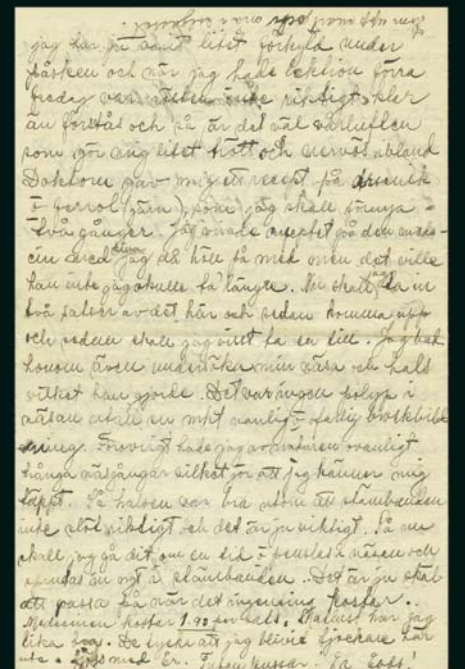 jag har ju varit litet förkyld under
påsken och när jag hade lektion förra
fredag var rösten inte riktigt klar
än förstås och så är det väl vårluften
som gör mig litet trött och nervös ibland
Doktorn gav mig ett recept på arsenik
o ferrol (järn), som jag skall förnya
två gånger. Jag
cin med jag då höll på med men det ville
han inte jag skulle ta längre. Nu skall jag ta in
två satser av det här och sedan komma upp
och sedan skall jag visst få en till. Jag bad
honom även undersöka min näsa och hals
vilket han gjorde. Det var ingen polyp i
näsan utan en mkt vanlig o ofarlig broskbild
ning. Förövrigt hade jag av naturen ovanligt
trånga näsgångar vilket gör att jag känner mig
täppt. Så halsen var bra utom att stämbanden
inte slöt riktigt och det är ju viktigt. Så nu
skall jag gå dit om en tid o pensla i näsan och
sprutas an nytt i stämbanden.. Det är ju skäl
att passa på när det ingenting kostar..
Medicinen kostar 1.90 per sats. Aptit har jag
lika bra. De tycks att jag blivit tjockare här
ute.